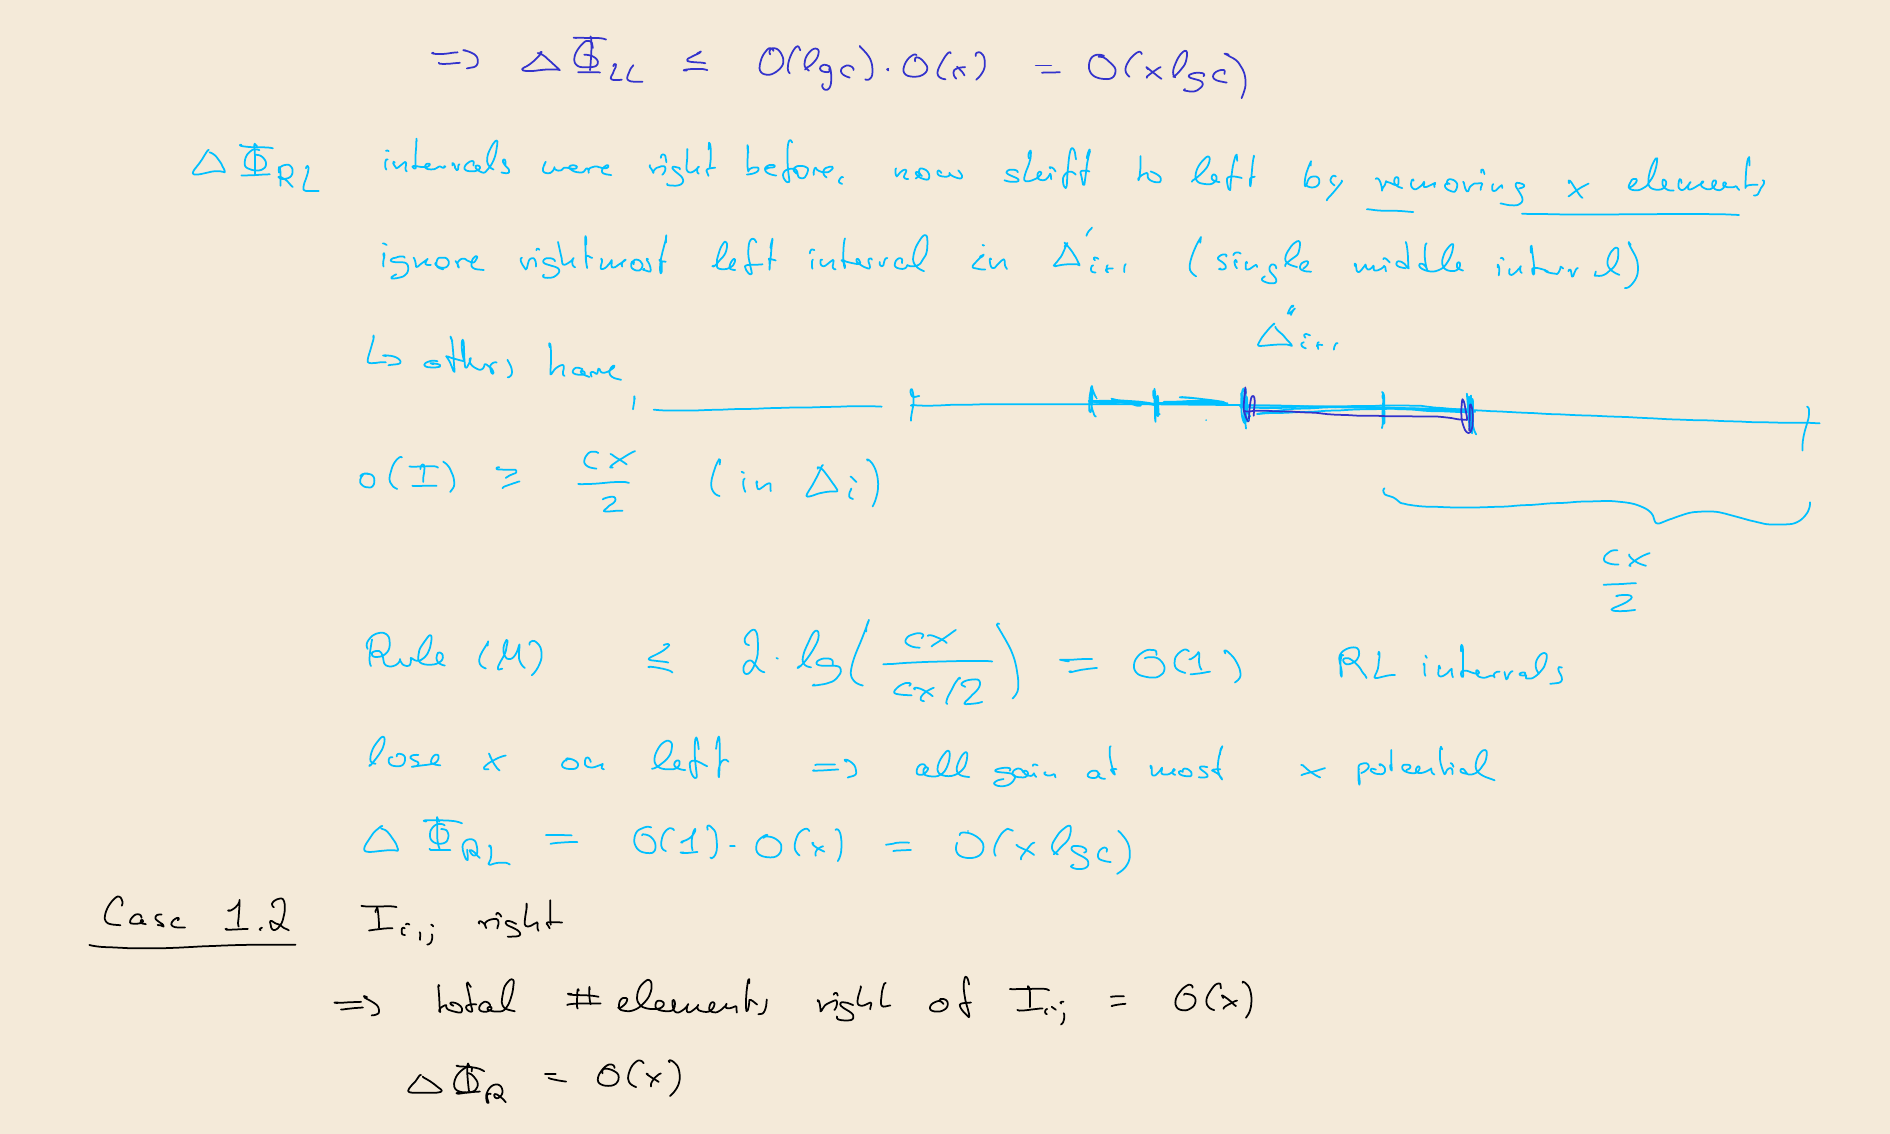 => ΔΦ_LL ≤ O(lg c) · O(x) = O(x lg c)
ΔΦ_RL intervals were right before, now shift to left by removing x elements
ignore rightmost left interval in Δ'_i+1 (single middle interval)
Δ''_i+1
↳ others have
o(I) ≥ cx/2 (in Δ_i)
cx/2
Rule (M) ≤ 2·lg(cx / (cx/2)) = O(1) RL intervals
lose x on left => all gain at most x potential
ΔΦ_RL = O(1)·O(x) = O(x lg c)
Case 1.2 I_i,j right
=> total # elements right of I_i,j = O(x)
ΔΦ_R = O(x)